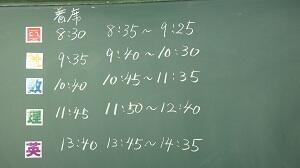 着席
国 8:30 8:35〜9:25
社 9:35 9:40〜10:30
数 10:40 10:45〜11:35
理 11:45 11:50〜12:40
英 13:40 13:45〜14:35